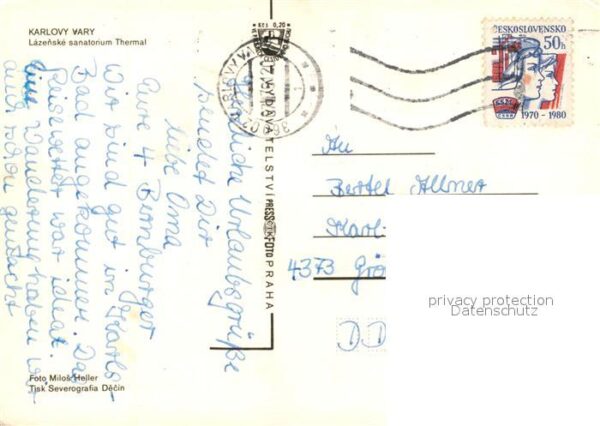 KARLOVY VARY
Lázeňské sanatorium Thermal
Kčs 0,20
KARLOVY VARY
VYDAVATELSTVÍ PRESSFOTO PRAHA
ČESKOSLOVENSKO
50h
1970 - 1980
Herzliche Urlaubsgrüße
sendet Dir
liebe Oma
Eure 4 Bernburger
Wir sind gut in Karls-
bad angekommen. Das
Reisewetter war ideal.
Eine Wanderung haben wir
auch schon gemacht
An
Bertel Allner
Karl-
4373 Grö
DD
privacy protection
Datenschutz
Foto Miloš Heller
Tisk Severografia Děčín